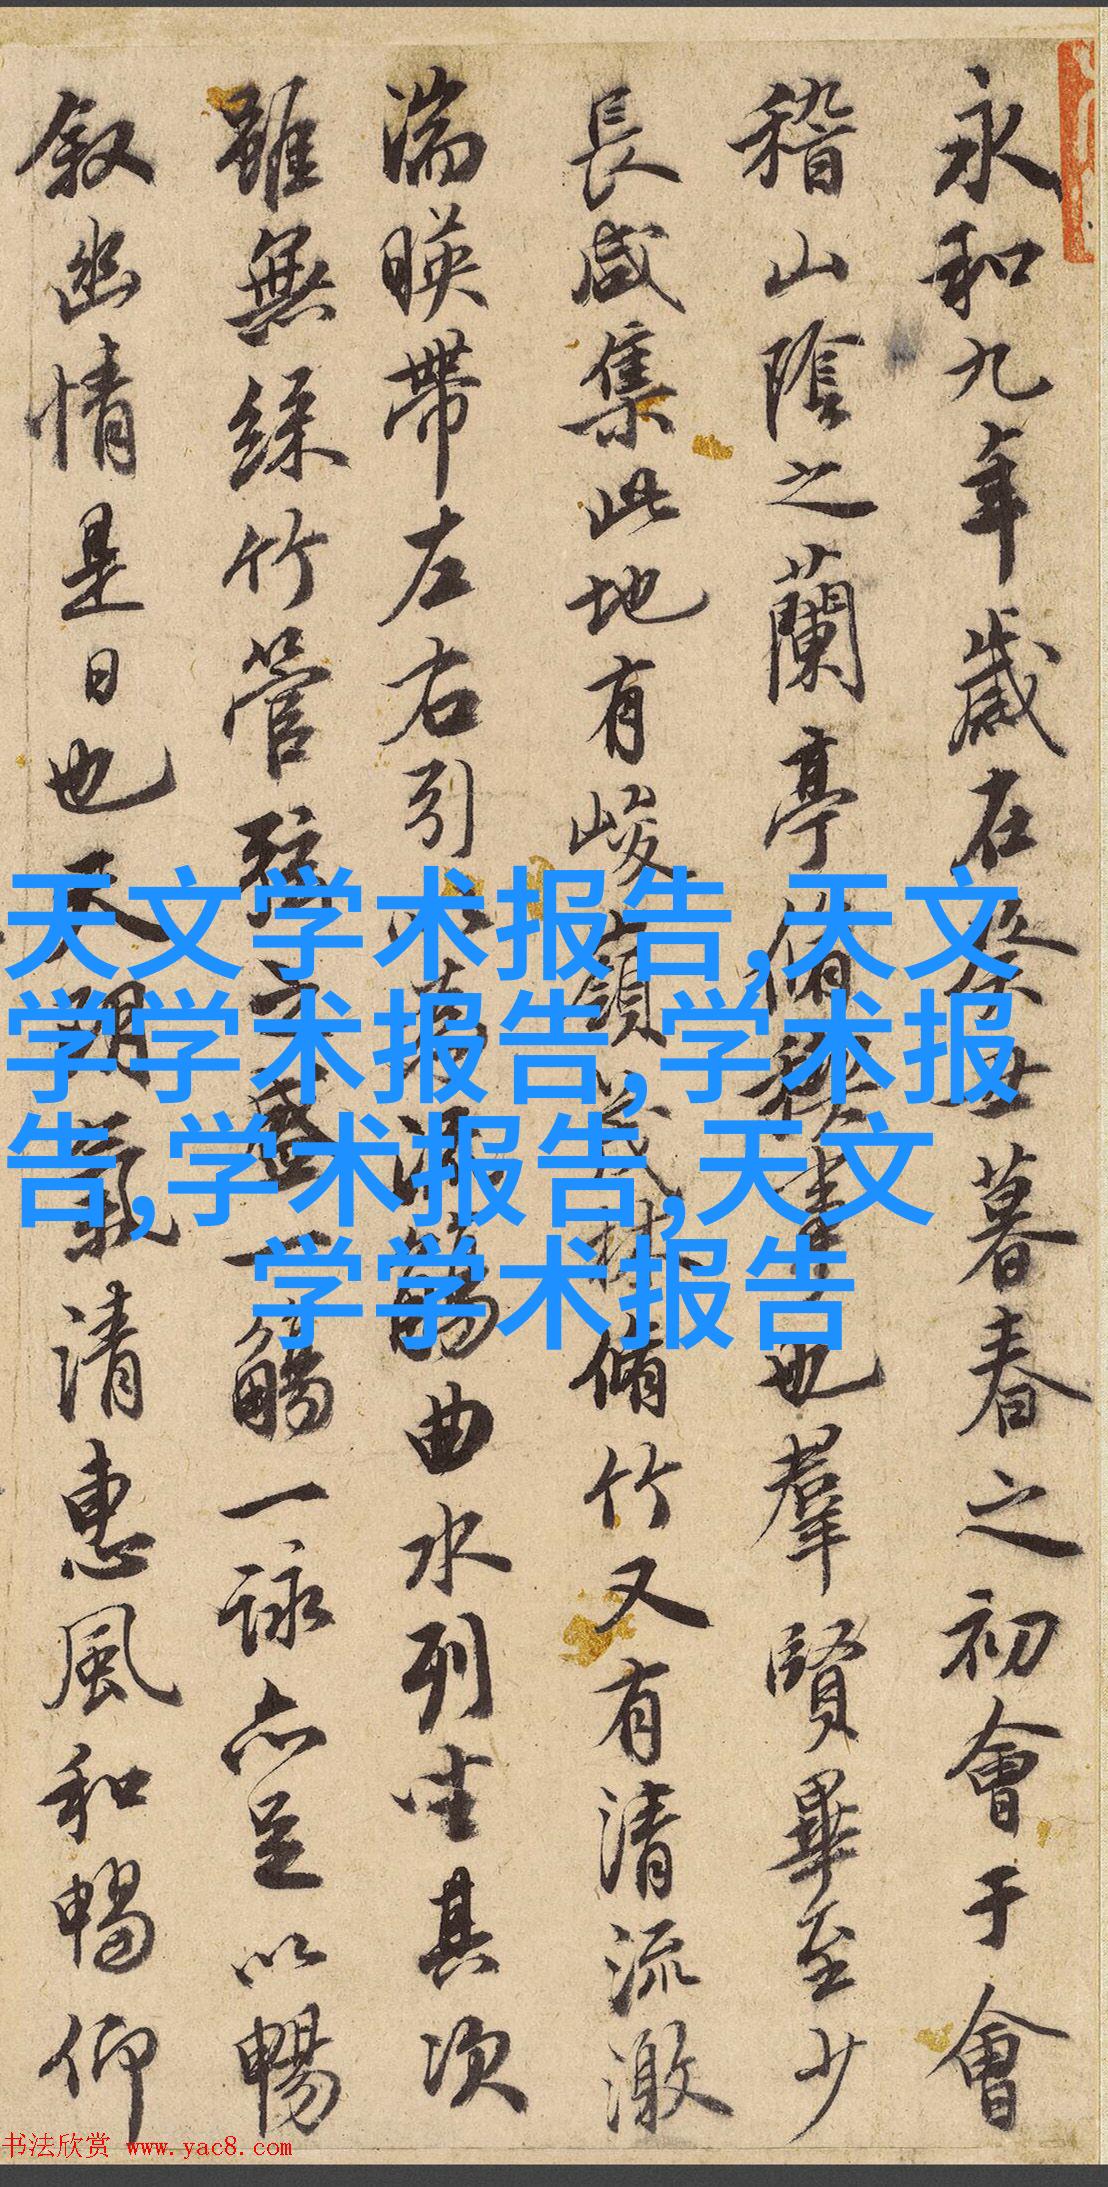 永和九年歲在癸丑暮春之初會于會
稽山陰之蘭亭脩稧事也羣賢畢至少
長咸集此地有峻嶺茂林脩竹又有清流激
湍暎帶左右引以為流觴曲水列坐其次
雖無絲竹管弦之盛一觴一詠亦足以暢
叙幽情是日也天朗氣清惠風和暢仰
天文学术报告,天文
学学术报告,学术报
告,学术报告,天文
学学术报告
书法欣赏 www.yac8.com